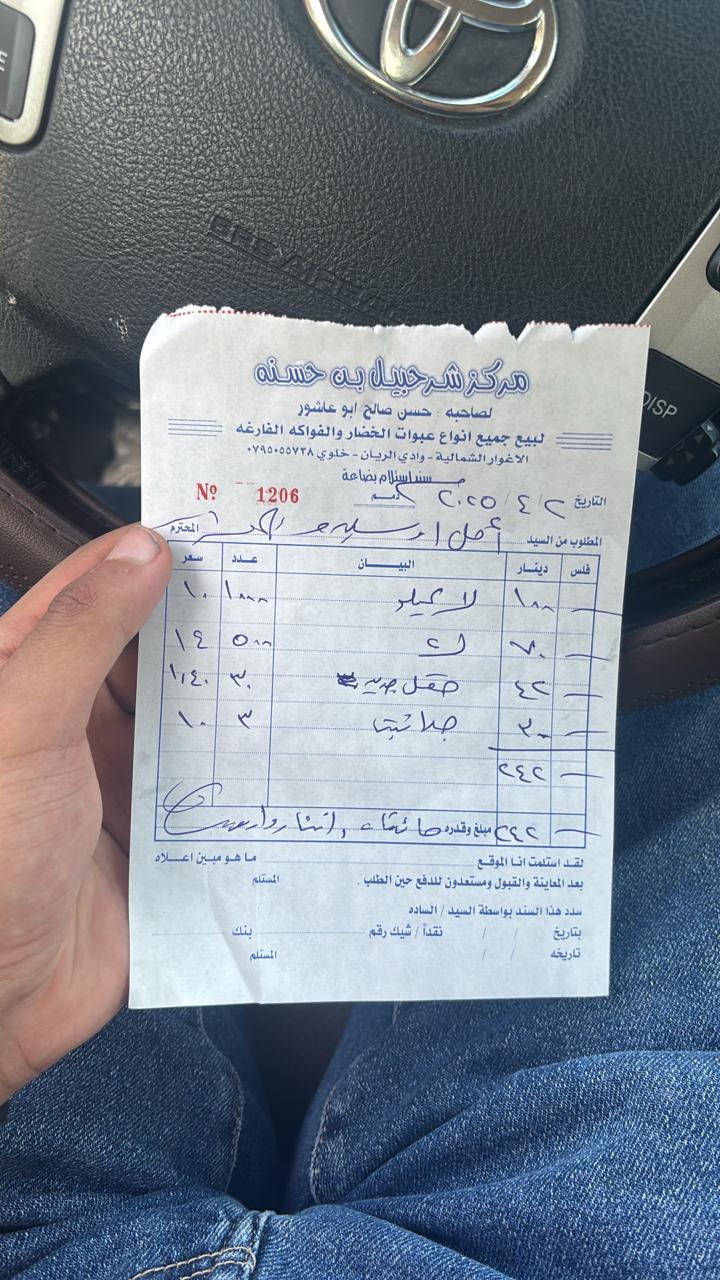 مركز شرحبيل بن حسنه
لصاحبه : حسن صالح ابو عاشور
لبيع جميع انواع عبوات الخضار والفواكه الفارغه
الاغوار الشمالية - وادي الريان - خلوي ٠٧٩٥٠٥٥٧٣٨
سند استلام بضاعة
التاريخ ٢ / ٤ / ٢٠٢٥ Nº 1206
المطلوب من السيد المحترم
فلس دينار البيـــان عدد سعر
١٠٠ ١٠٠٠ ١٠
٧٠ ٥٠٠ ١٤
٤٢ حقل ٣٠ ١,٤٠
٣٠ ٣ ١٠
٢٤٢
٢٤٢ مبلغ وقدره
لقد استلمت انا الموقع ما هو مبين اعلاه
بعد المعاينة والقبول ومستعدون للدفع حين الطلب . المستلم
سدد هذا السند بواسطة السيد / الساده
بتاريخ / / نقداً / شيك رقم بنك
تاريخه / / المستلم
DISP
SRS AIRBAG
E